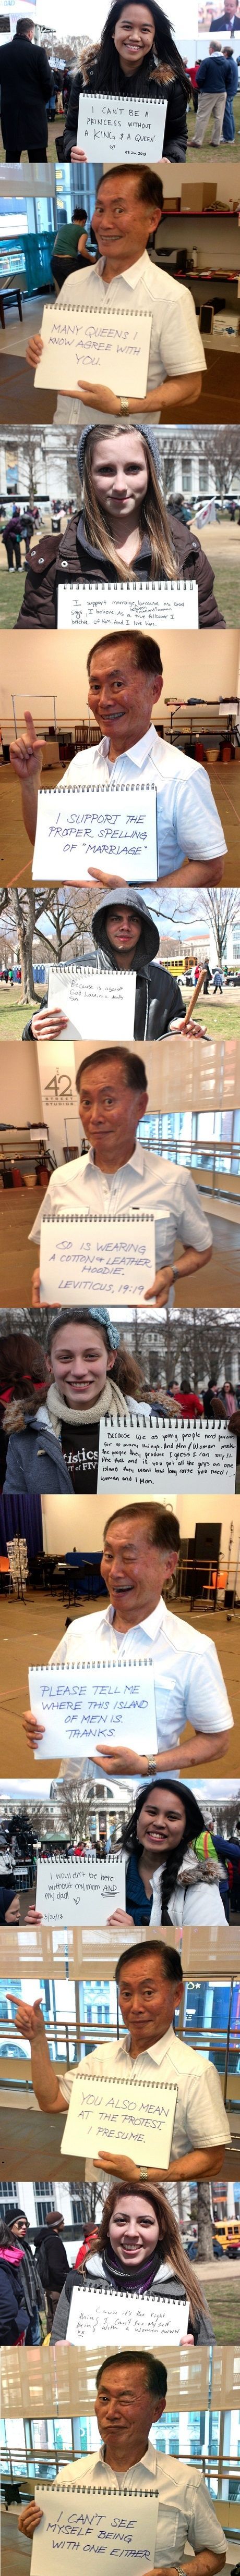 I CAN'T BE A
PRINCESS WITHOUT
A KING & A QUEEN
MANY QUEENS I
KNOW AGREE WITH
YOU.
I support marriage because as God
says, I believe. As a true follower I
believe of Him. And I love Him.
I SUPPORT THE
PROPER SPELLING
OF "MARRIAGE"
Because is against
God
42
STREET
STUDIOS
SO IS WEARING
A COTTON & LEATHER
HOODIE.
LEVITICUS, 19:19
Because we as young people
for so many things. And Men/Woman make
the people they produce I guess I can say it
like that and if you put all the guys on one
island they wont last long cause you need 1
woman and 1 Man.
PLEASE TELL ME
WHERE THIS ISLAND
OF MEN IS.
THANKS.
I wouldn't be here
without my mom AND
my dad!
YOU ALSO MEAN
AT THE PROTEST,
I PRESUME.
it's the right
thing I can't see myself
being with a women
I CAN'T SEE
MYSELF BEING
WITH ONE EITHER